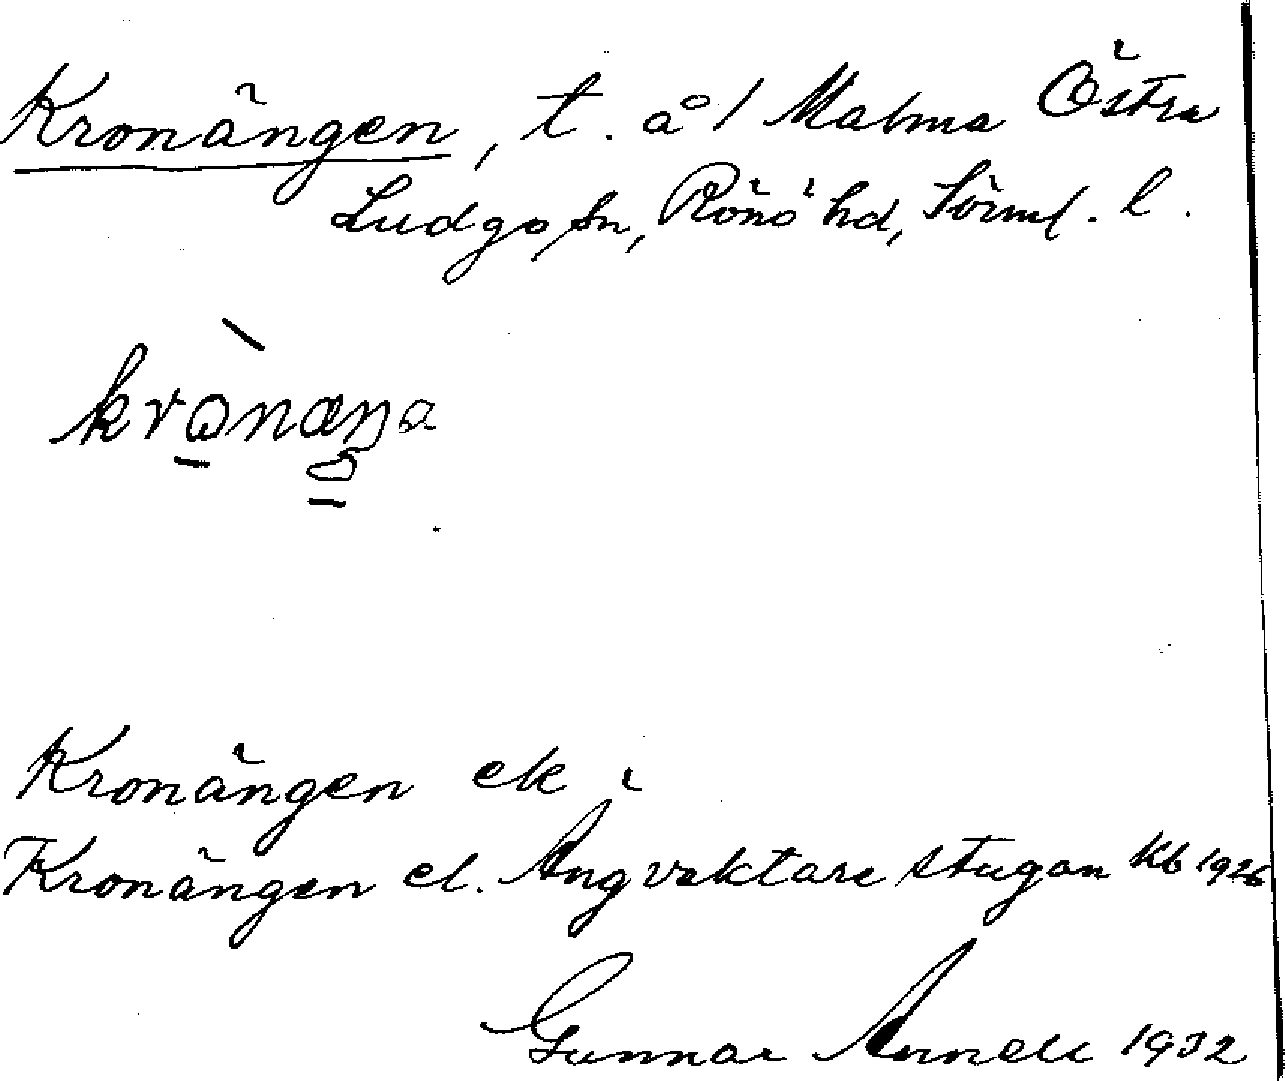 Kronängen, t. å / Malma Östra
Ludgo sn, Rönö hd, Sörml. l.
krònæŋa
Kronängen ek
Kronängen el. Ängvaktare stugan kb 1926
Gunnar 1932